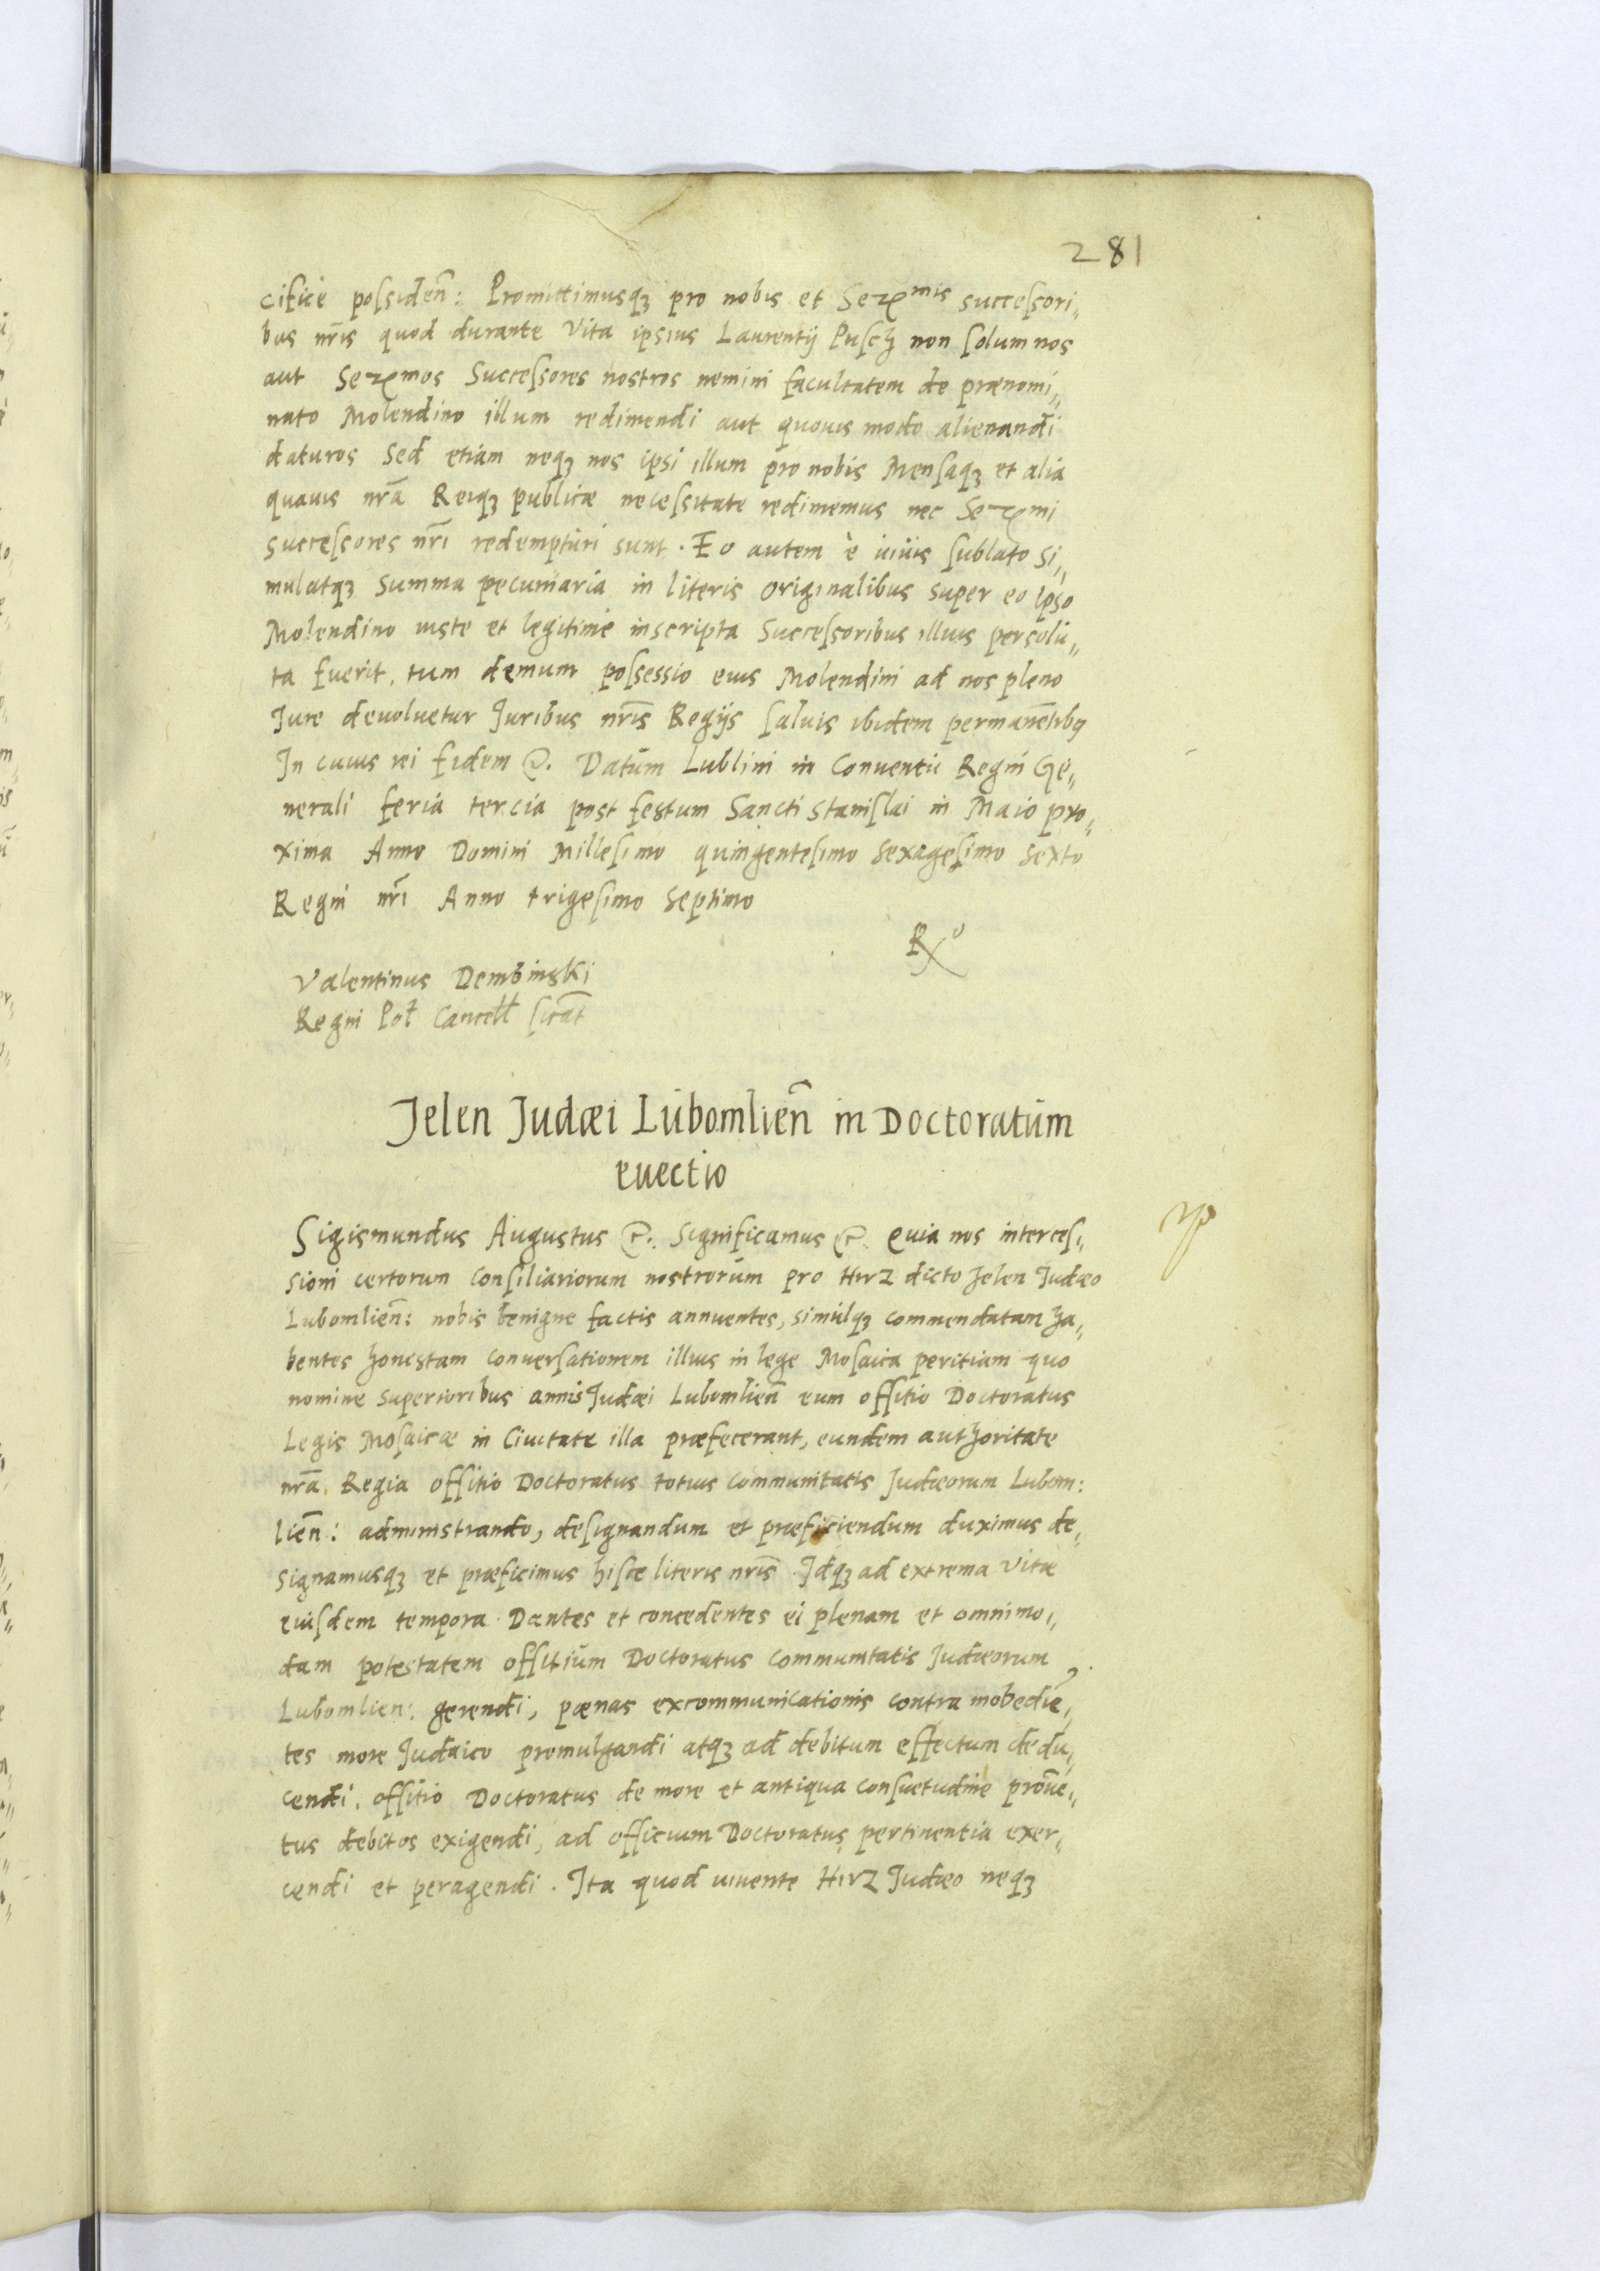 281
cifice possideñ: Promittimusqȝ pro nobis et Serᵐⁱˢ successori„
bus nr̃is quod durante Vita ipsius Laurentij Pusch non solum nos
aut Sermos Successores nostros nemini facultatem de prænomi„
nato Molendino illum redimendi aut quouis modo alienandi
daturos Sed etiam neqȝ nos ipsi illum pro nobis Mensaqȝ et alia
quauis nr̃a Reiqȝ publicæ necessitate redimemus nec Sermi
successores nr̃i redempturi sunt. Eo autem è viuis sublato Si„
mulatqȝ Summa pecuniaria in literis Originalibus super eo ipso
Molendino iuste et legitime inscripta Successoribus illius persolu„
ta fuerit, tum demum possessio eius Molendini ad nos pleno
Jure deuoluetur Juribus nr̃is Regijs saluis ibidem permanẽtibꝰ
In cuius rei fidem &. Datum Lublini in Conuentu Regni Ge„
nerali feria tercia post festum Sancti Stanislai in Maio pro„
xima Anno Domini Millesimo quingentesimo Sexagesimo Sexto
Regni nr̃i Anno trigesimo Septimo
Valentinus Dembinski
Regni Pol Cancell
Jelen Judæi Lubomlieñ in Doctoratum
euectio
Sigismundus Augustus &. Significamus &. Quia nos interces„
sioni certorum Consiliariorum nostrorum pro Hirz dicto Jelen Judæo
Lubomlieñ: nobis benigne factis annuentes, simulqȝ commendatam ha„
bentes honestam Conuersationem illius in lege Mosaica peritiam quo
nomine superioribus annis Judæi Lubomlieñ eum offitio Doctoratus
Legis Mosaicæ in Ciuitate illa præfecerant, eundem authoritate
nr̃a Regia offitio Doctoratus totius Communitatis Judæorum Lubom:
lieñ: administrando, designandum et præficiendum duximus de„
signamusqȝ et præficimus hisce literis nr̃is. Idqȝ ad extrema vitæ
eiusdem tempora. Dantes et concedentes ei plenam et omnimo„
dam potestatem offitium Doctoratus Communitatis Judæorum
Lubomlien: gerendi, pœnas excommunicationis contra inobediẽ„
tes more Judaico promulgandi atqȝ ad debitum effectum dedu„
cendi, offitio Doctoratus de more et antiqua consuetudine proue„
tus debitos exigendi, ad officium Doctoratus pertinentia exer„
cendi et peragendi. Ita quod viuente Hirz Judæo neqȝ